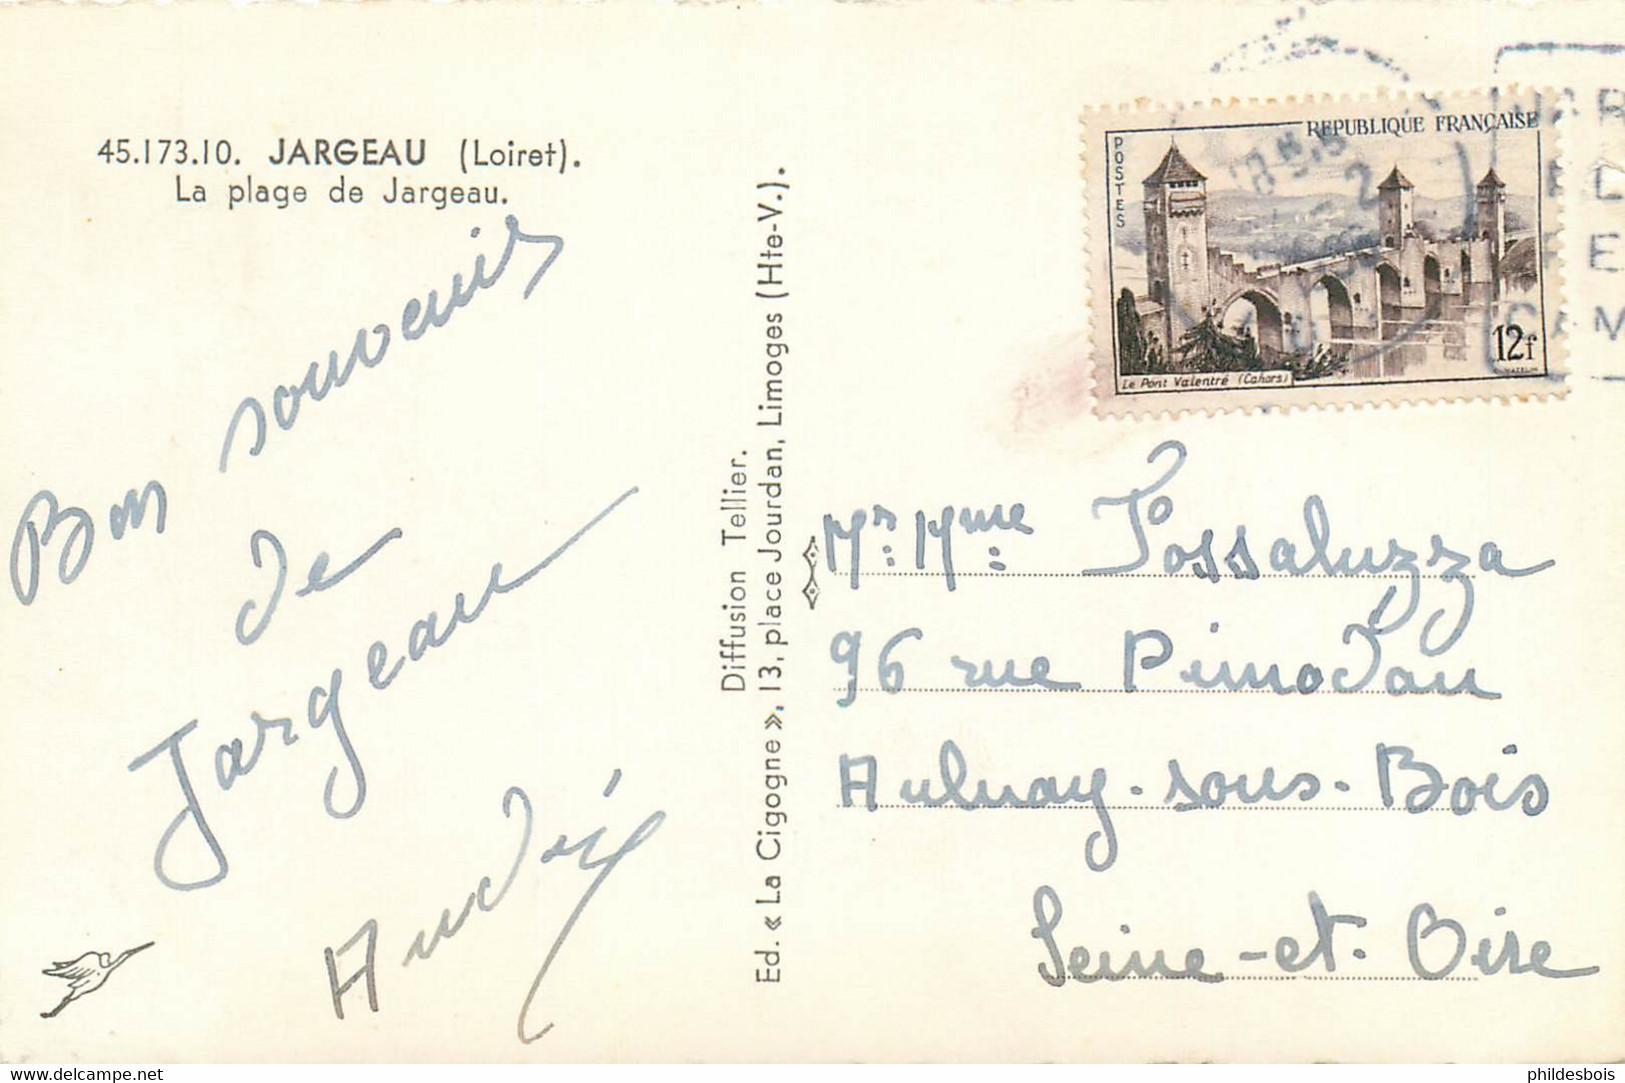 45.173.10. JARGEAU (Loiret).
La plage de Jargeau.
Bon souvenir
de
Jargeau
André
Diffusion Tellier.
Ed. « La Cigogne », 13, place Jourdan, Limoges (Hte-V.).
POSTES
REPUBLIQUE FRANÇAISE
12f
Le Pont Valentré (Cahors)
Mr. Mme. Possaluzza
96 rue Pimodan
Aulnay-sous-Bois
Seine-et-Oise
www.delcampe.net
phildesbois